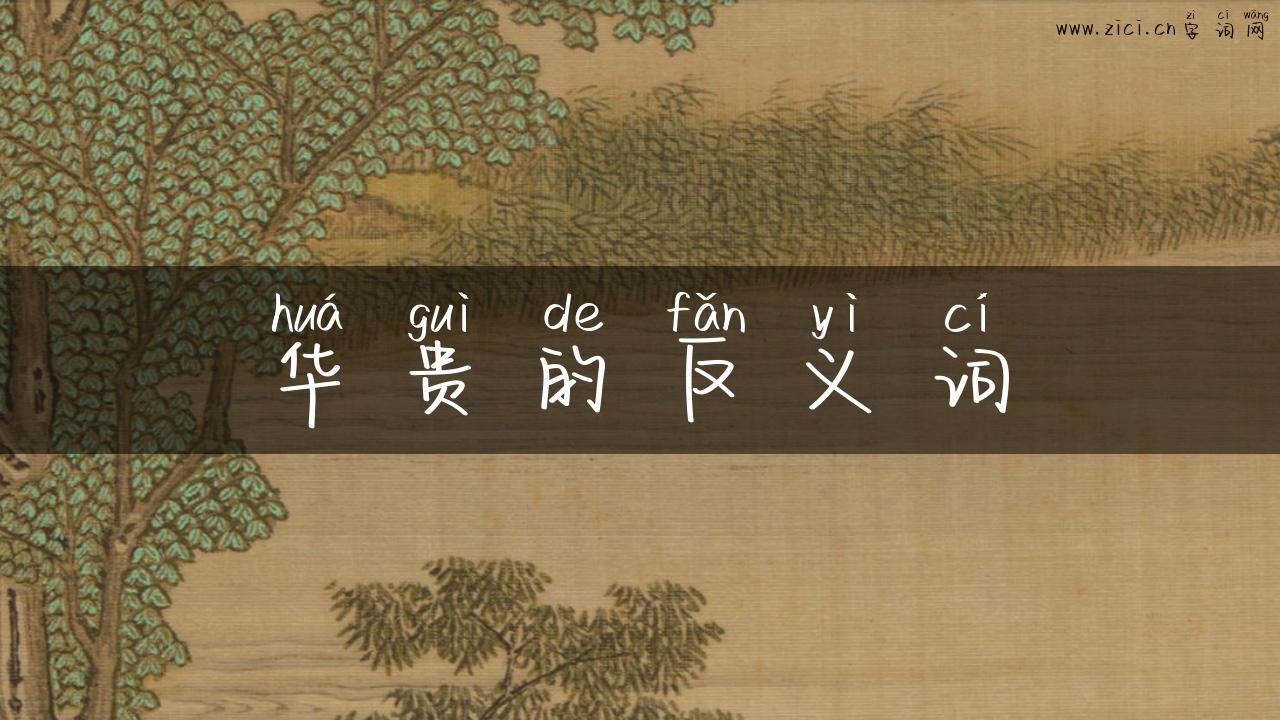 zì cí wǎng
www.zici.cn字词网
huá guì de fǎn yì cí
华贵的反义词